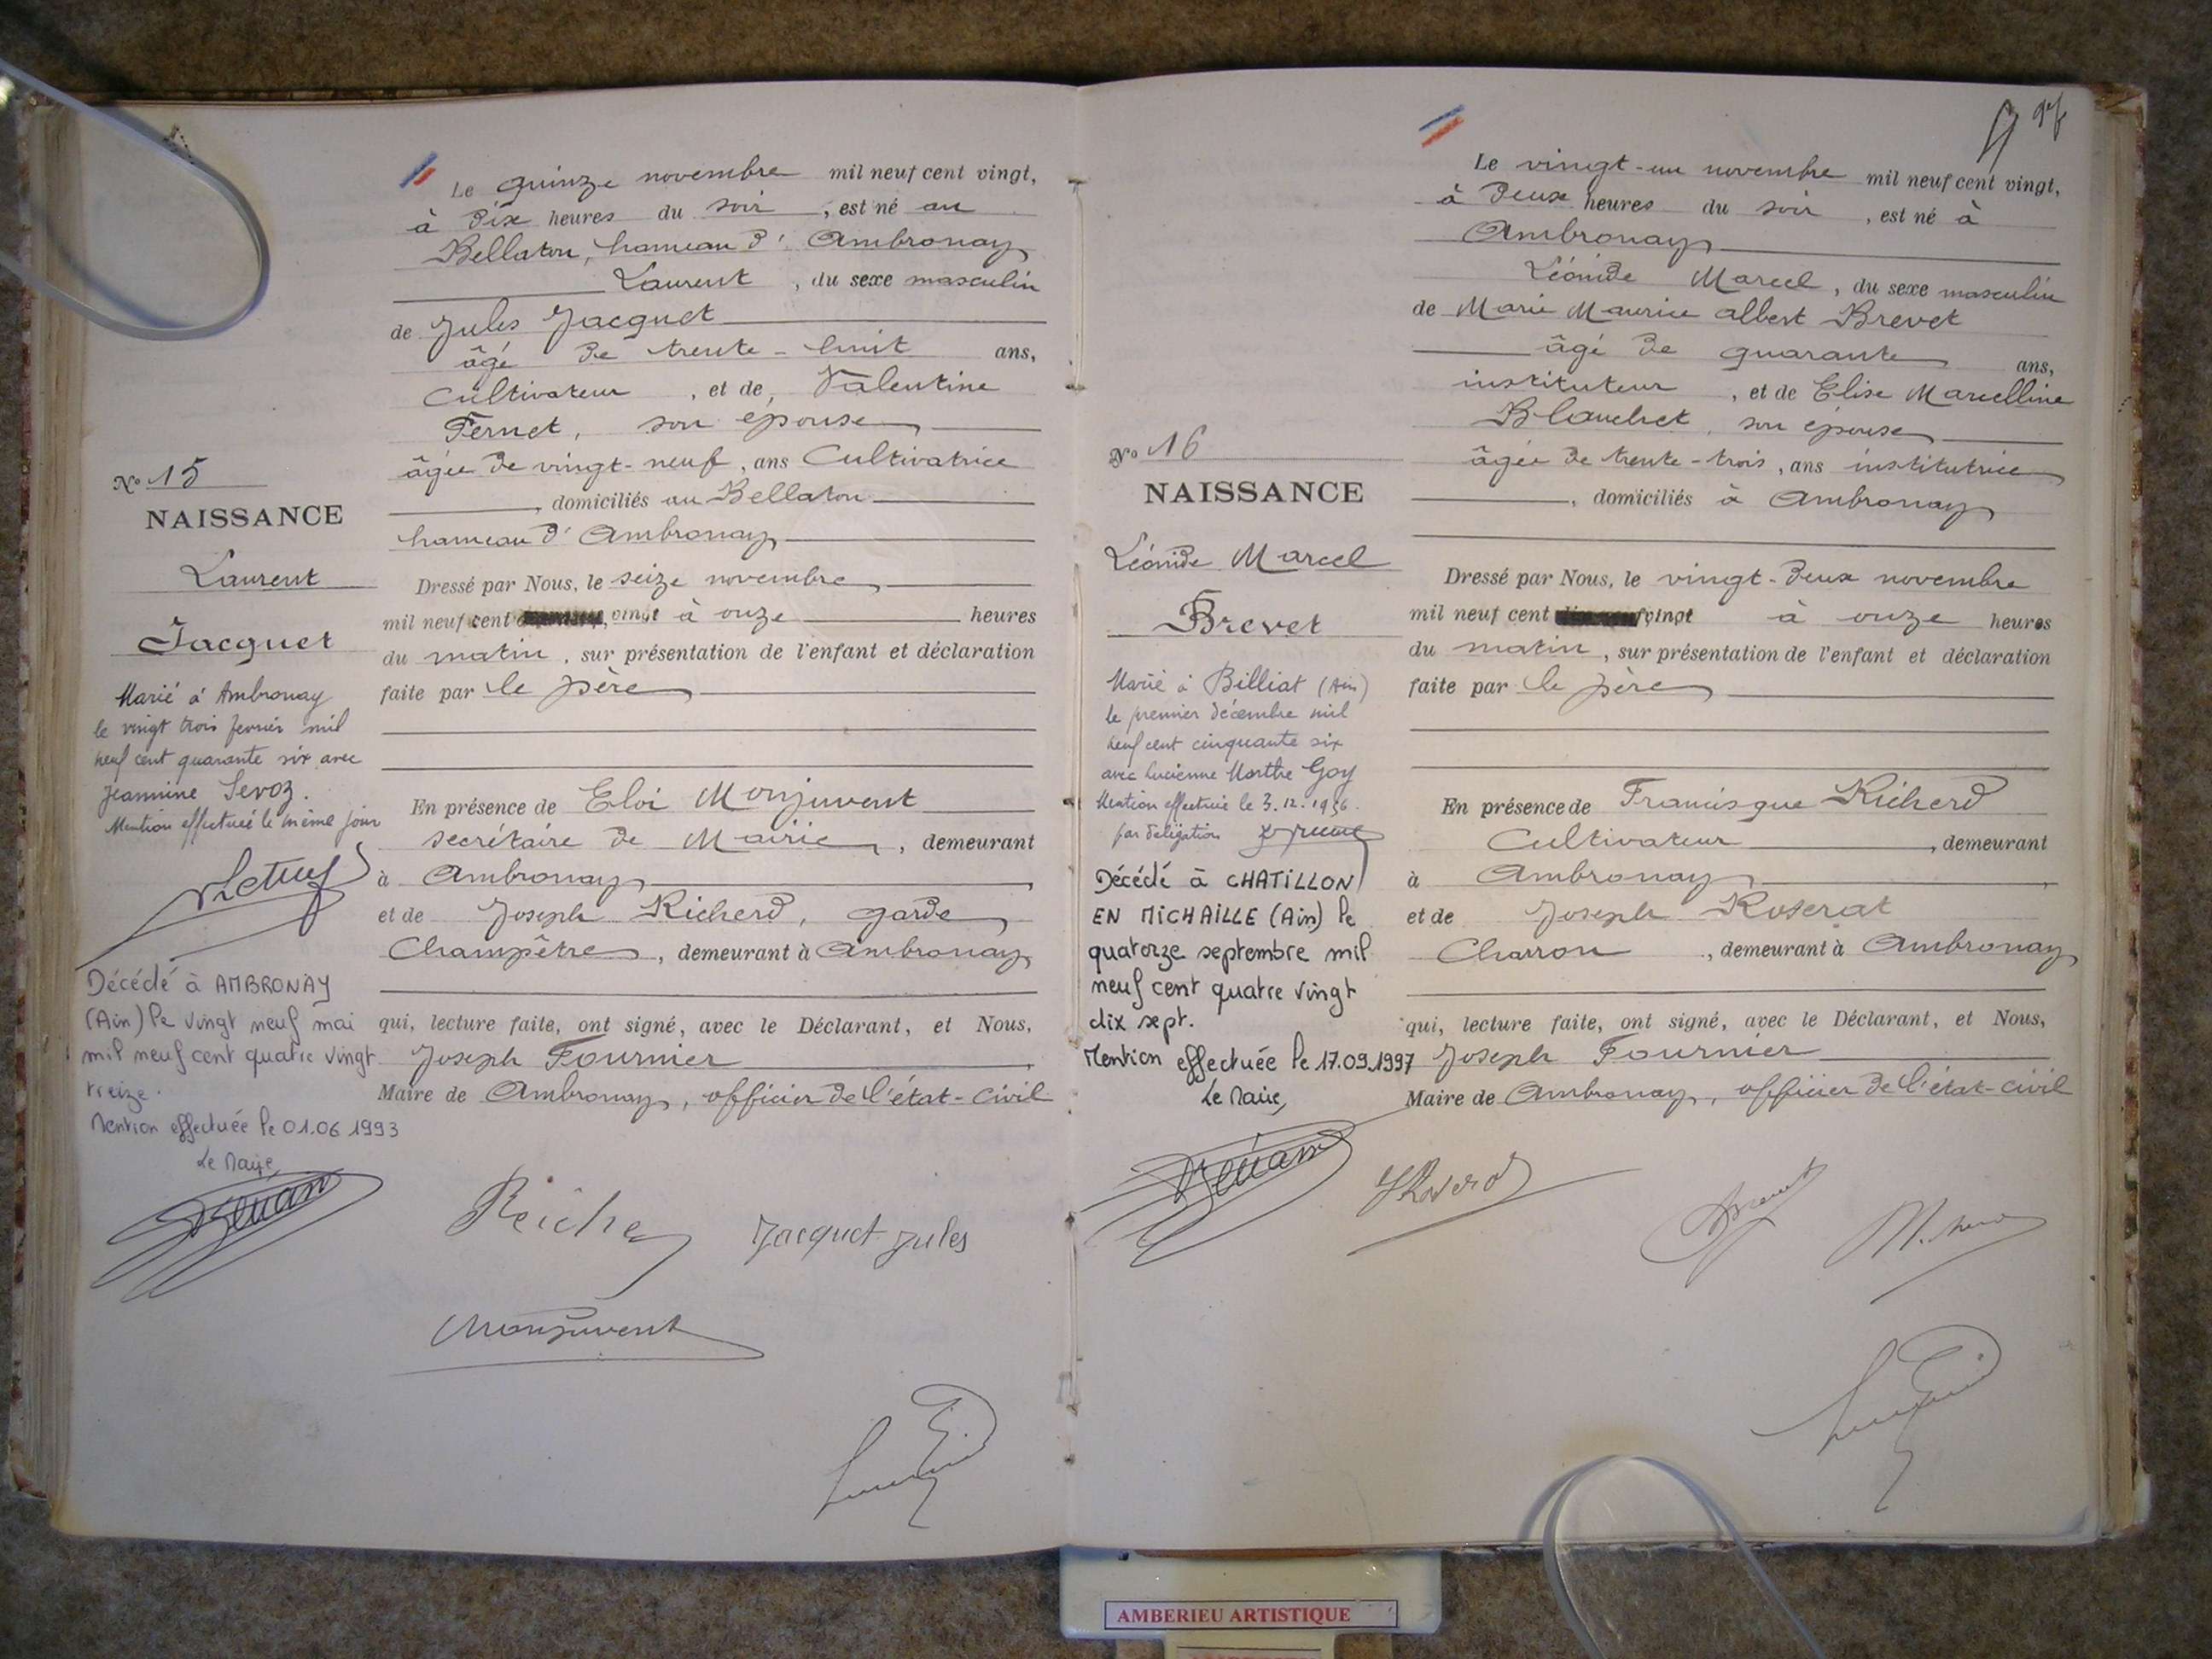 Le quinze novembre mil neuf cent vingt,
à dix heures du soir, est né au
Bellaton, hameau d'Ambronay
Laurent, du sexe masculin
de Jules Jacquet
âgé de trente-huit ans,
cultivateur, et de Valentine
Fernet, son épouse
âgée de vingt-neuf, ans Cultivatrice
, domiciliés au Bellaton
hameau d'Ambronay
Dressé par Nous, le seize novembre
mil neuf cent vingt à onze heures
du matin, sur présentation de l'enfant et déclaration
faite par le père
En présence de Eloi Monjuvent
secrétaire de Mairie, demeurant
à Ambronay
et de Joseph Richerd, garde
Champêtre, demeurant à Ambronay
qui, lecture faite, ont signé, avec le Déclarant, et Nous,
Joseph Fournier
Maire de Ambronay, officier de l'état-civil
Jacquet Jules
Monjuvent
No 15
NAISSANCE
Laurent
Jacquet
Marié à Ambronay
le vingt trois fevrier mil
neuf cent quarante six avec
Jeannine Sevoz.
Mention effectuée le même jour
Décédé à AMBRONAY
(Ain) le vingt neuf mai
mil neuf cent quatre vingt
treize.
Mention effectuée le 01.06 1993
Le Maire,
Le vingt-un novembre mil neuf cent vingt,
à deux heures du soir, est né à
Ambronay
Léonide Marcel, du sexe masculin
de Marie Maurice albert Brevet
âgé de quarante ans,
instituteur, et de Elise Marcelline
Blanchet, son épouse
âgée de trente-trois, ans institutrice
, domiciliés à Ambronay
Dressé par Nous, le vingt-deux novembre
mil neuf cent vingt à onze heures
du matin, sur présentation de l'enfant et déclaration
faite par le père
En présence de Francisque Richerd
Cultivateur, demeurant
à Ambronay
et de Joseph Roserat
Charron, demeurant à Ambronay
qui, lecture faite, ont signé, avec le Déclarant, et Nous,
Joseph Fournier
Maire de Ambronay, officier de l'état-civil
No 16
NAISSANCE
Léonide Marcel
Brevet
Marié à Billiat (Ain)
le premier décembre mil
neuf cent cinquante six
avec Lucienne Marthe Goy
Mention effectuée le 3.12.1956.
par délégation
Décédé à CHATILLON
EN MICHAILLE (Ain) le
quatorze septembre mil
neuf cent quatre vingt
dix sept.
Mention effectuée le 17.09.1997
Le Maire,
AMBERIEU ARTISTIQUE